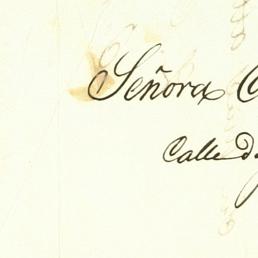 Señora
Calle d